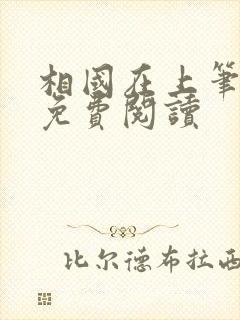 相國在上筆
免費閱讀
比尔德布拉西